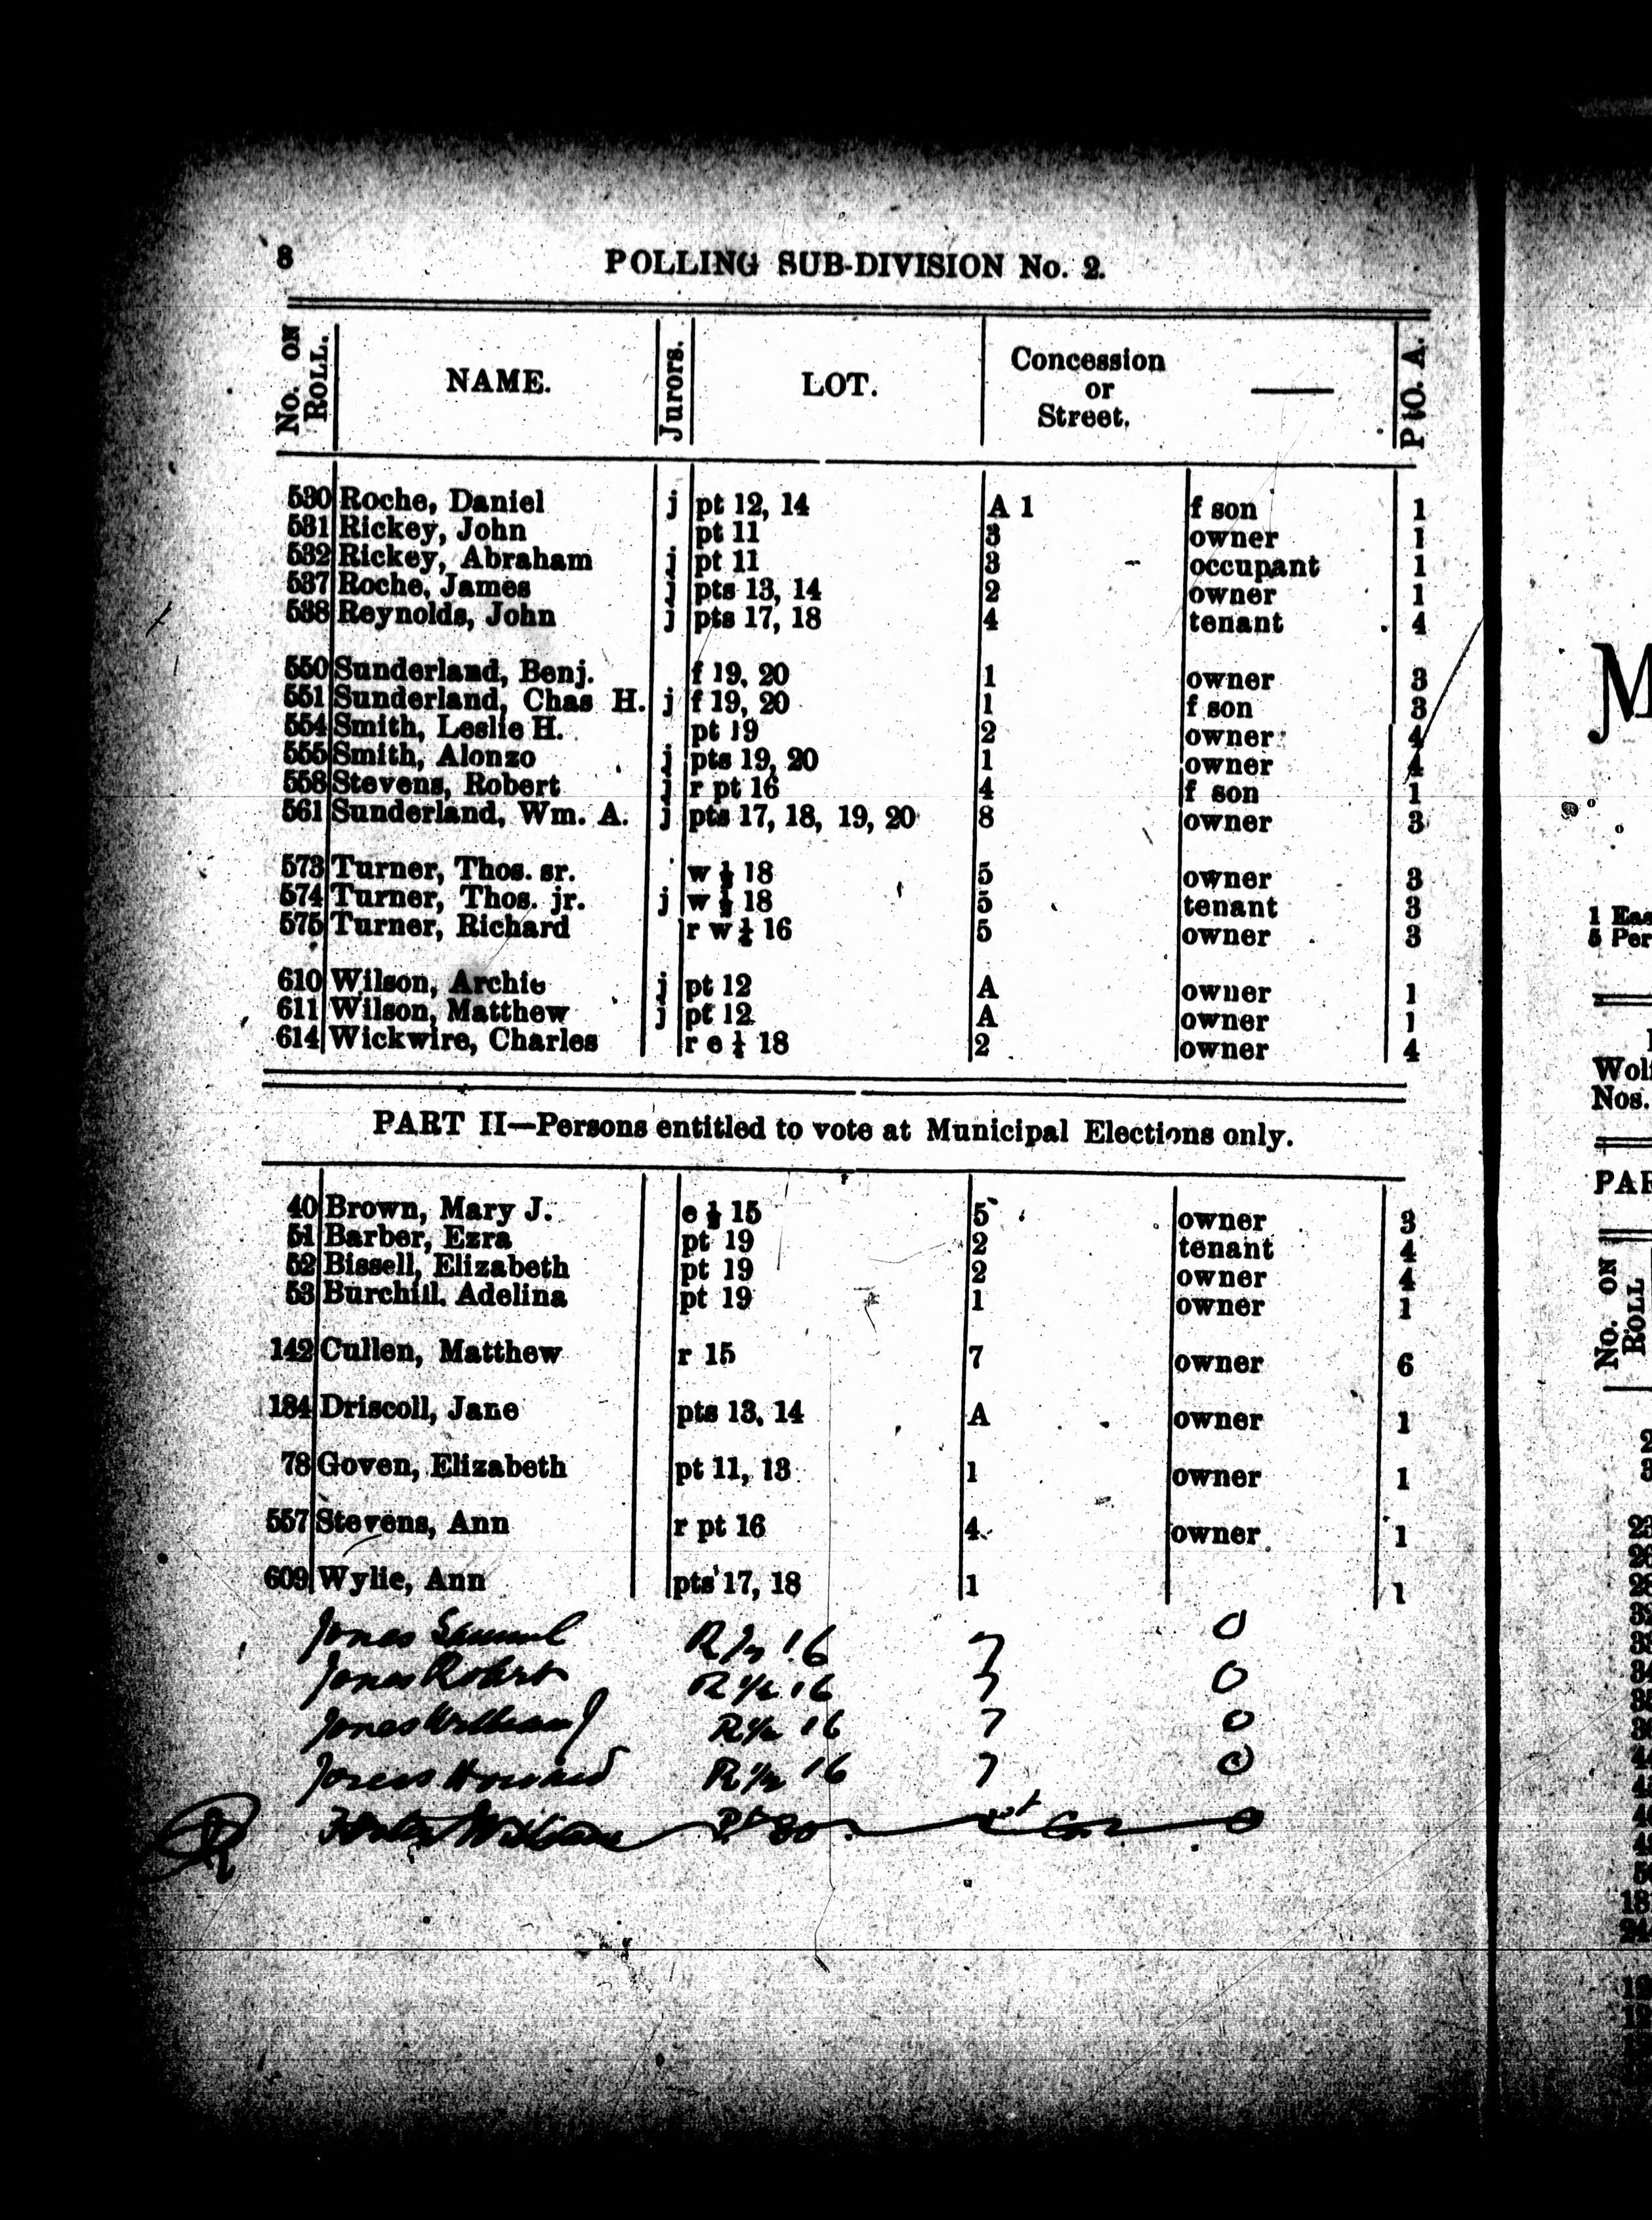 8 POLLING SUB-DIVISION No. 2.
No. ON ROLL. NAME. Jurors. LOT. Concession or Street. — P O. A.
530 Roche, Daniel j pt 12, 14 A 1 f son 1
531 Rickey, John pt 11 3 owner 1
532 Rickey, Abraham j pt 11 3 occupant 1
537 Roche, James j pts 13, 14 2 owner 1
538 Reynolds, John j pts 17, 18 4 tenant 4
550 Sunderland, Benj. f 19, 20 1 owner 3
551 Sunderland, Chas H. j f 19, 20 1 f son 3
554 Smith, Leslie H. pt 19 2 owner 4
555 Smith, Alonzo j pts 19, 20 1 owner 4
558 Stevens, Robert j r pt 16 4 f son 1
561 Sunderland, Wm. A. j pts 17, 18, 19, 20 8 owner 3
573 Turner, Thos. sr. w ½ 18 5 owner 3
574 Turner, Thos. jr. j w ½ 18 5 tenant 3
575 Turner, Richard r w 16 5 owner 3
610 Wilson, Archie j pt 12 A owner 1
611 Wilson, Matthew j pt 12 A owner 1
614 Wickwire, Charles r e 18 2 owner 4
PART II—Persons entitled to vote at Municipal Elections only.
40 Brown, Mary J. e ½ 15 5 owner 3
51 Barber, Ezra pt 19 2 tenant 4
52 Bissell, Elizabeth pt 19 2 owner 4
53 Burchill, Adelina pt 19 1 owner 1
142 Cullen, Matthew r 15 7 owner 6
184 Driscoll, Jane pts 13, 14 A owner 1
78 Goven, Elizabeth pt 11, 13 1 owner 1
557 Stevens, Ann r pt 16 4 owner 1
609 Wylie, Ann pts 17, 18 1 1
Jones Samuel R ½ 16 7 O
Jones Robert R ½ 16 7 O
Jones William J R ½ 16 7 O
Jones Howard R ½ 16 7 O
William
M
1 Eas
5 Per
Wolf
Nos.
PAR
No. ON ROLL